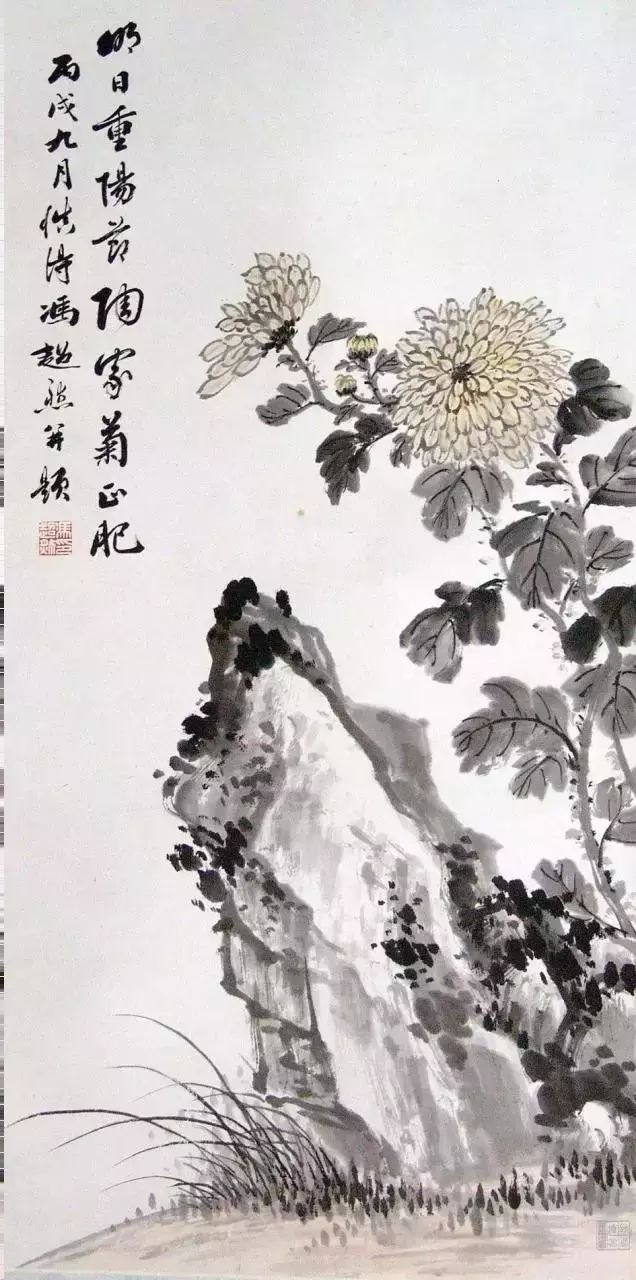 明日重陽節陶家菊正肥
丙戌九月慎得馮超然并題